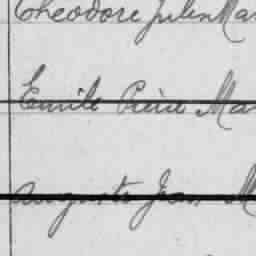 Theodore Julien Mar
Emile Pierre Mar
Auguste Jean M